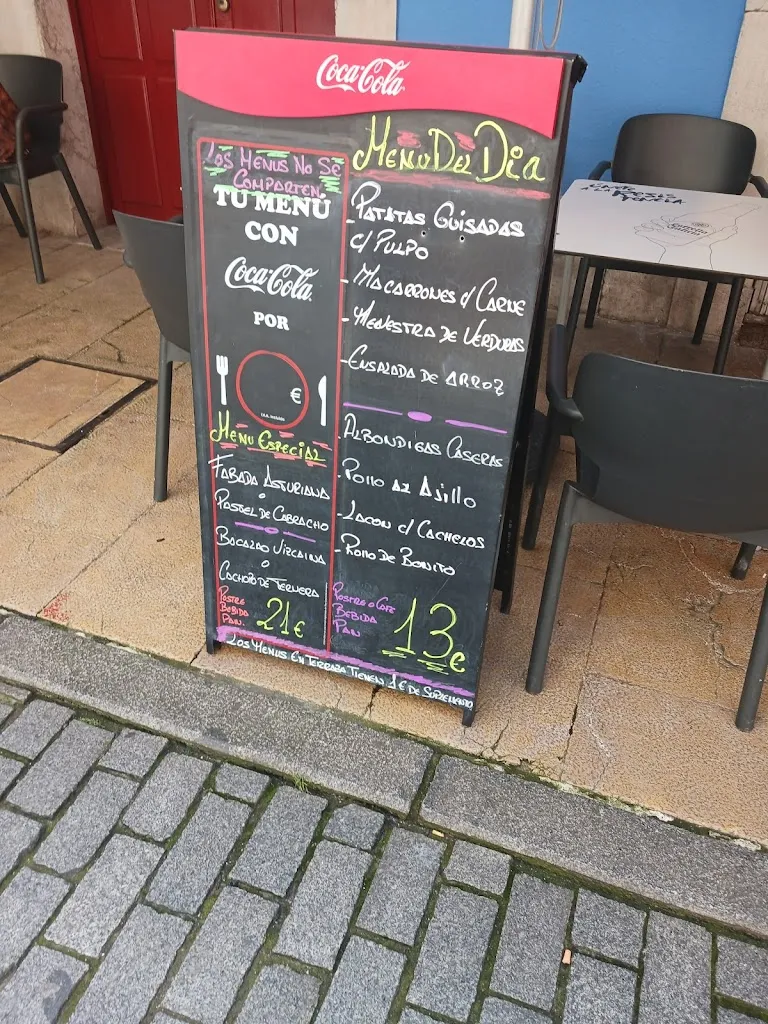 Coca-Cola
LOS MENUS NO SE
COMPARTEN
TU MENÚ
CON
Coca-Cola
POR
€
MENU ESPECIAL
FABADA ASTURIANA
o
PASTEL DE CABRACHO
BACALAO VIZCAINA
o
CACHOPO DE TERNERA
POSTRE
BEBIDA
PAN.
21€
MENU DEL DIA
-PATATAS GUISADAS
c/ PULPO
-MACARRONES c/ CARNE
-MENESTRA DE VERDURAS
-ENSALADA DE ARROZ
-ALBONDIGAS CASERAS
-POLLO AL AJILLO
-LACON c/ CACHELOS
-ROLLO DE BONITO
POSTRE o CAFE
BEBIDA
PAN
13€
LOS MENUS EN TERRAZA TIENEN 1€ DE SUPLEMENTO